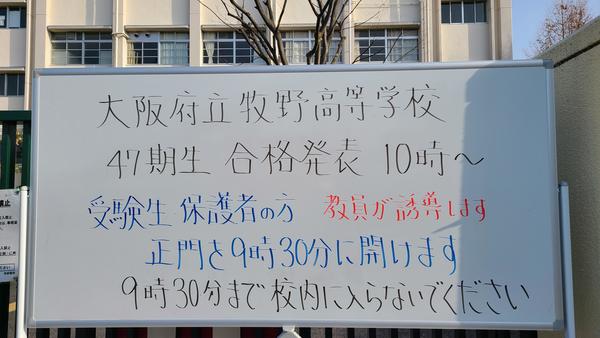 大阪府立牧野高等学校
47期生 合格発表 10時〜
受験生 保護者の方 教員が誘導します
正門を9時30分に開けます
9時30分まで校内に入らないでください